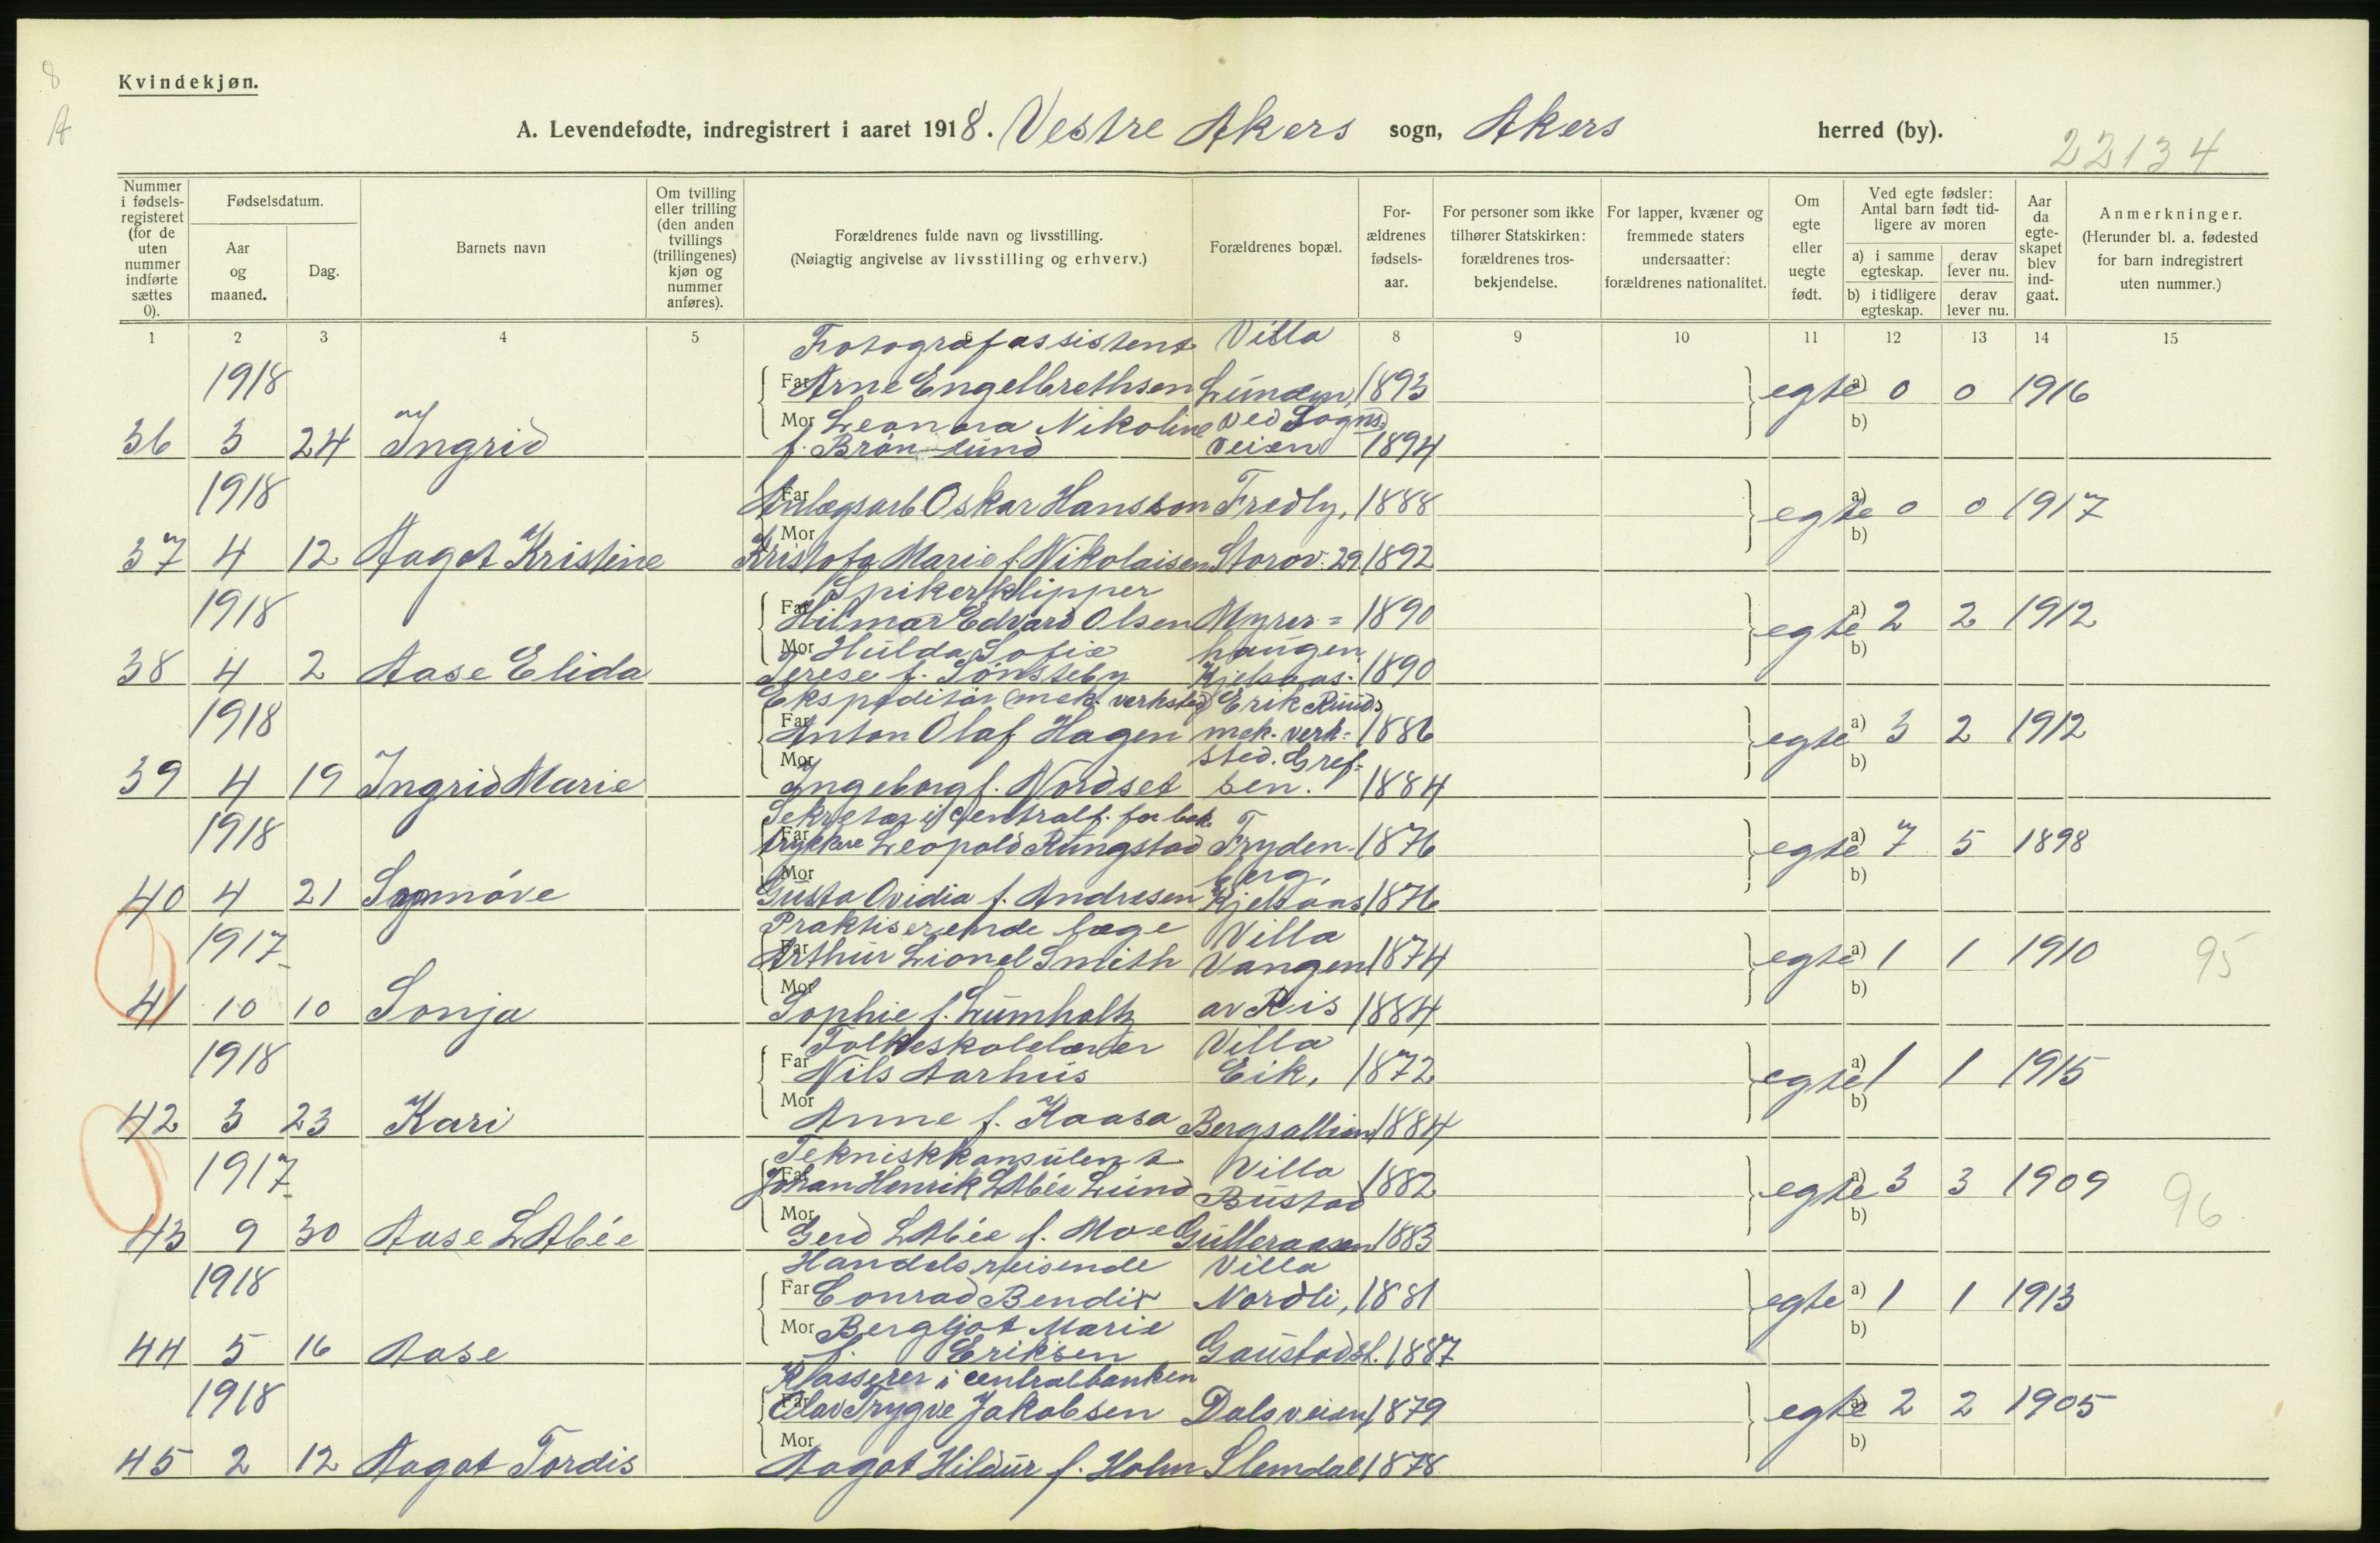 8
A
Kvindekjøn.
A. Levendefødte, indregistrert i aaret 1918. Vestre Akers sogn, Akers herred (by).
22134
Nummer i fødsels-registeret (for de uten nummer indførte sættes 0).
Fødselsdatum.
Aar og maaned.
Dag.
Barnets navn
Om tvilling eller trilling (den anden tvillings (trillingenes) kjøn og nummer anføres).
Forældrenes fulde navn og livsstilling. (Nøiagtig angivelse av livsstilling og erhverv.)
Forældrenes bopæl.
For-ældrenes fødsels-aar.
For personer som ikke tilhører Statskirken: forældrenes tros-bekjendelse.
For lapper, kvæner og fremmede staters undersaatter: forældrenes nationalitet.
Om egte eller uegte født.
Ved egte fødsler: Antal barn født tid-ligere av moren
a) i samme egteskap. derav lever nu.
b) i tidligere egteskap. derav lever nu.
Aar da egte-skapet blev ind-gaat.
Anmerkninger. (Herunder bl. a. fødested for barn indregistrert uten nummer.)
1 2 3 4 5 6 8 9 10 11 12 13 14 15
Fotografassistent Villa
1918 Far Arne Engelbrethsen Lunden, 1893 egte a) 0 0 1916
Mor Leonora Nikoline ved Sogns- b)
36 3 24 Ingrid f. Brønlund veien 1894
1918 Far Anlægsarb Oskar Hansson Fredly, 1888 egte a) 0 0 1917
Mor b)
37 4 12 Aagot Kristine Kristofa Marie f. Nikolaisen Storov. 29. 1892
Spikerklipper
1918 Far Hilmar Edvard Olsen Myrer= 1890 egte a) 2 2 1912
Mor Hulda Sofie haugen b)
38 4 2 Aase Elida Terese f. Tønsteby Kjelsaas. 1890
Ekspeditør (mek. verksted) Erik Ruuds
1918 Far Anton Olaf Hagen mek. verk= 1886 egte a) 3 2 1912
Mor sted. Gref= b)
39 4 19 Ingrid Marie Ingeborg f. Nordset sen. 1884
Sekretær i Centralf. for bok
1918 Far trykkere Leopold Rungstad Fryden- 1876 egte a) 7 5 1898
Mor berg, b)
40 4 21 Synnöve Gusta Ovidia f. Andresen Kjelsaas 1876
Praktiserende læge Villa
1917 Far Arthur Lionel Smith Vangen 1874 egte a) 1 1 1910 95
Mor b)
41 10 10 Sonja Sophie f. Lumholtz av Ris 1884
Folkeskolelærer Villa
1918 Far Nils Aarhus Eik, 1872 egte a) 1 1 1915
Mor b)
42 3 23 Kari Anne f. Kaasa Bergsallien 1884
Tekniskkonsulent Villa
1917 Far Johan Henrik L'Abée Lund Bustad 1882 egte a) 3 3 1909 96
Mor b)
43 9 30 Aase L'Abée Gerd L'Abée f. Moe Gulleraasen 1883
Handelsreisende Villa
1918 Far Conrad Bendix Nordli, 1881 egte a) 1 1 1913
Mor Bergljot Marie b)
44 5 16 Aase f. Eriksen Gaustadst. 1887
Kasserer i centralbanken
1918 Far Olav Trygve Jakobsen Dalsveien, 1879 egte a) 2 2 1905
Mor b)
45 2 12 Aagot Tordis Aagot Hildur f. Holm Slemdal 1878